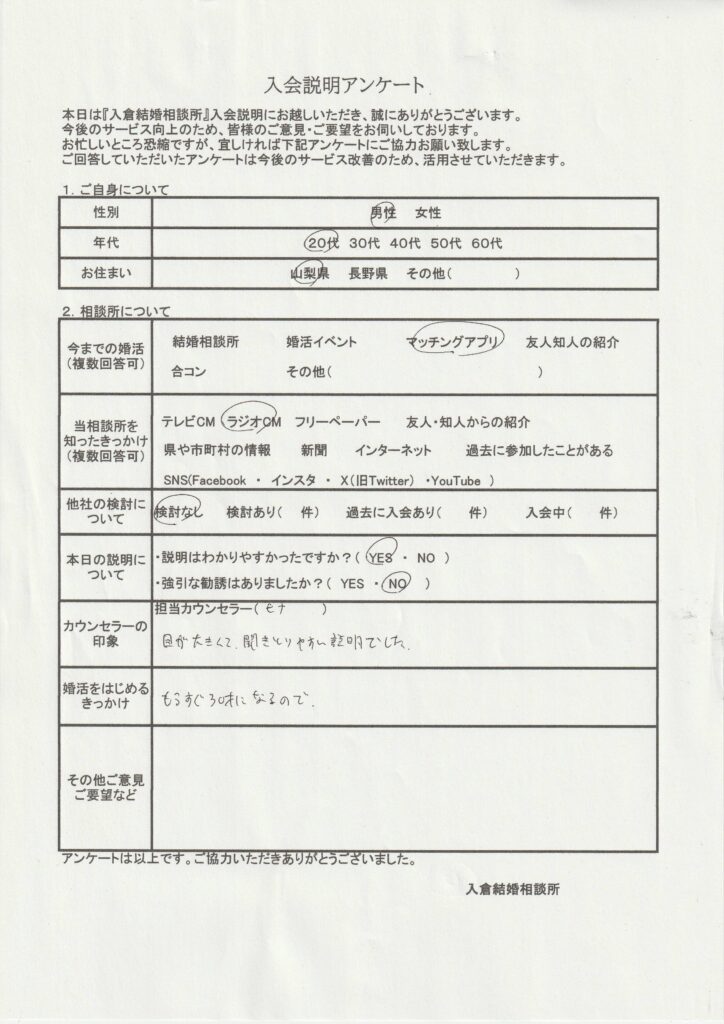 入会説明アンケート
本日は『入倉結婚相談所』入会説明にお越しいただき、誠にありがとうございます。
今後のサービス向上のため、皆様のご意見・ご要望をお伺いしております。
お忙しいところ恐縮ですが、宜しければ下記アンケートにご協力お願い致します。
ご回答していただいたアンケートは今後のサービス改善のため、活用させていただきます。
1. ご自身について
性別 男性 女性
年代 20代 30代 40代 50代 60代
お住まい 山梨県 長野県 その他( )
2. 相談所について
今までの婚活
(複数回答可)
結婚相談所 婚活イベント マッチングアプリ 友人知人の紹介
合コン その他( )
当相談所を
知ったきっかけ
(複数回答可)
テレビCM ラジオCM フリーペーパー 友人・知人からの紹介
県や市町村の情報 新聞 インターネット 過去に参加したことがある
SNS(Facebook ・ インスタ ・ X(旧Twitter) ・YouTube )
他社の検討に
ついて
検討なし 検討あり( 件) 過去に入会あり( 件) 入会中( 件)
本日の説明に
ついて
・説明はわかりやすかったですか?( YES ・ NO )
・強引な勧誘はありましたか?( YES ・ NO )
カウンセラーの
印象
担当カウンセラー( セナ )
目が大きくて、聞きとりやすい説明でした。
婚活をはじめる
きっかけ
もうすぐ30才になるので。
その他ご意見
ご要望など
アンケートは以上です。ご協力いただきありがとうございました。
入倉結婚相談所